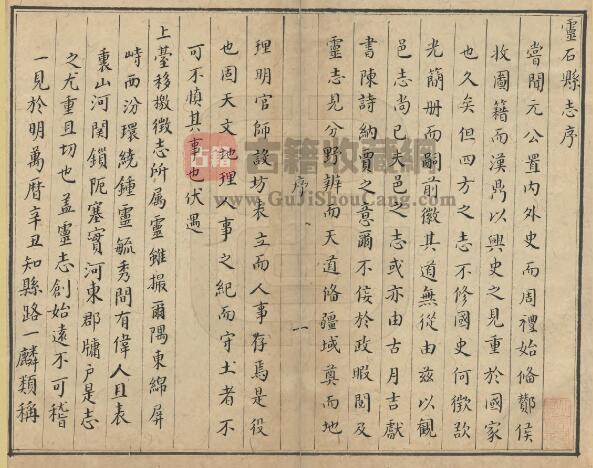 靈石縣志序
嘗聞元公置内外史而周禮始脩酇侯
收圖籍而漢鼎以興史之見重於國家
也久矣但四方之志不修國史何徵歆
光簡册而嗣前徽其道無從由兹以觀
邑志尚已夫邑之志或亦由古月吉獻
書陳詩納賈之意爾不佞於政暇閲及
靈志見分野辨而天道脩疆域奠而地
序
一
理明官師設坊表立而人事存焉是役
也固天文地理人事之紀而守土者不
可不慎其事也伏遇
上臺移檄徵志所屬靈雖撮爾隅東綿屏
峙西汾環繞鍾靈毓秀間有偉人且表
裏山河関鎖阨塞實河東郡牖户是志
之尤重且切也盖靈志創始遠不可稽
一見於明萬曆辛丑知縣路一麟類稱
古籍
古籍收藏網
www.GuJiShouCang.com